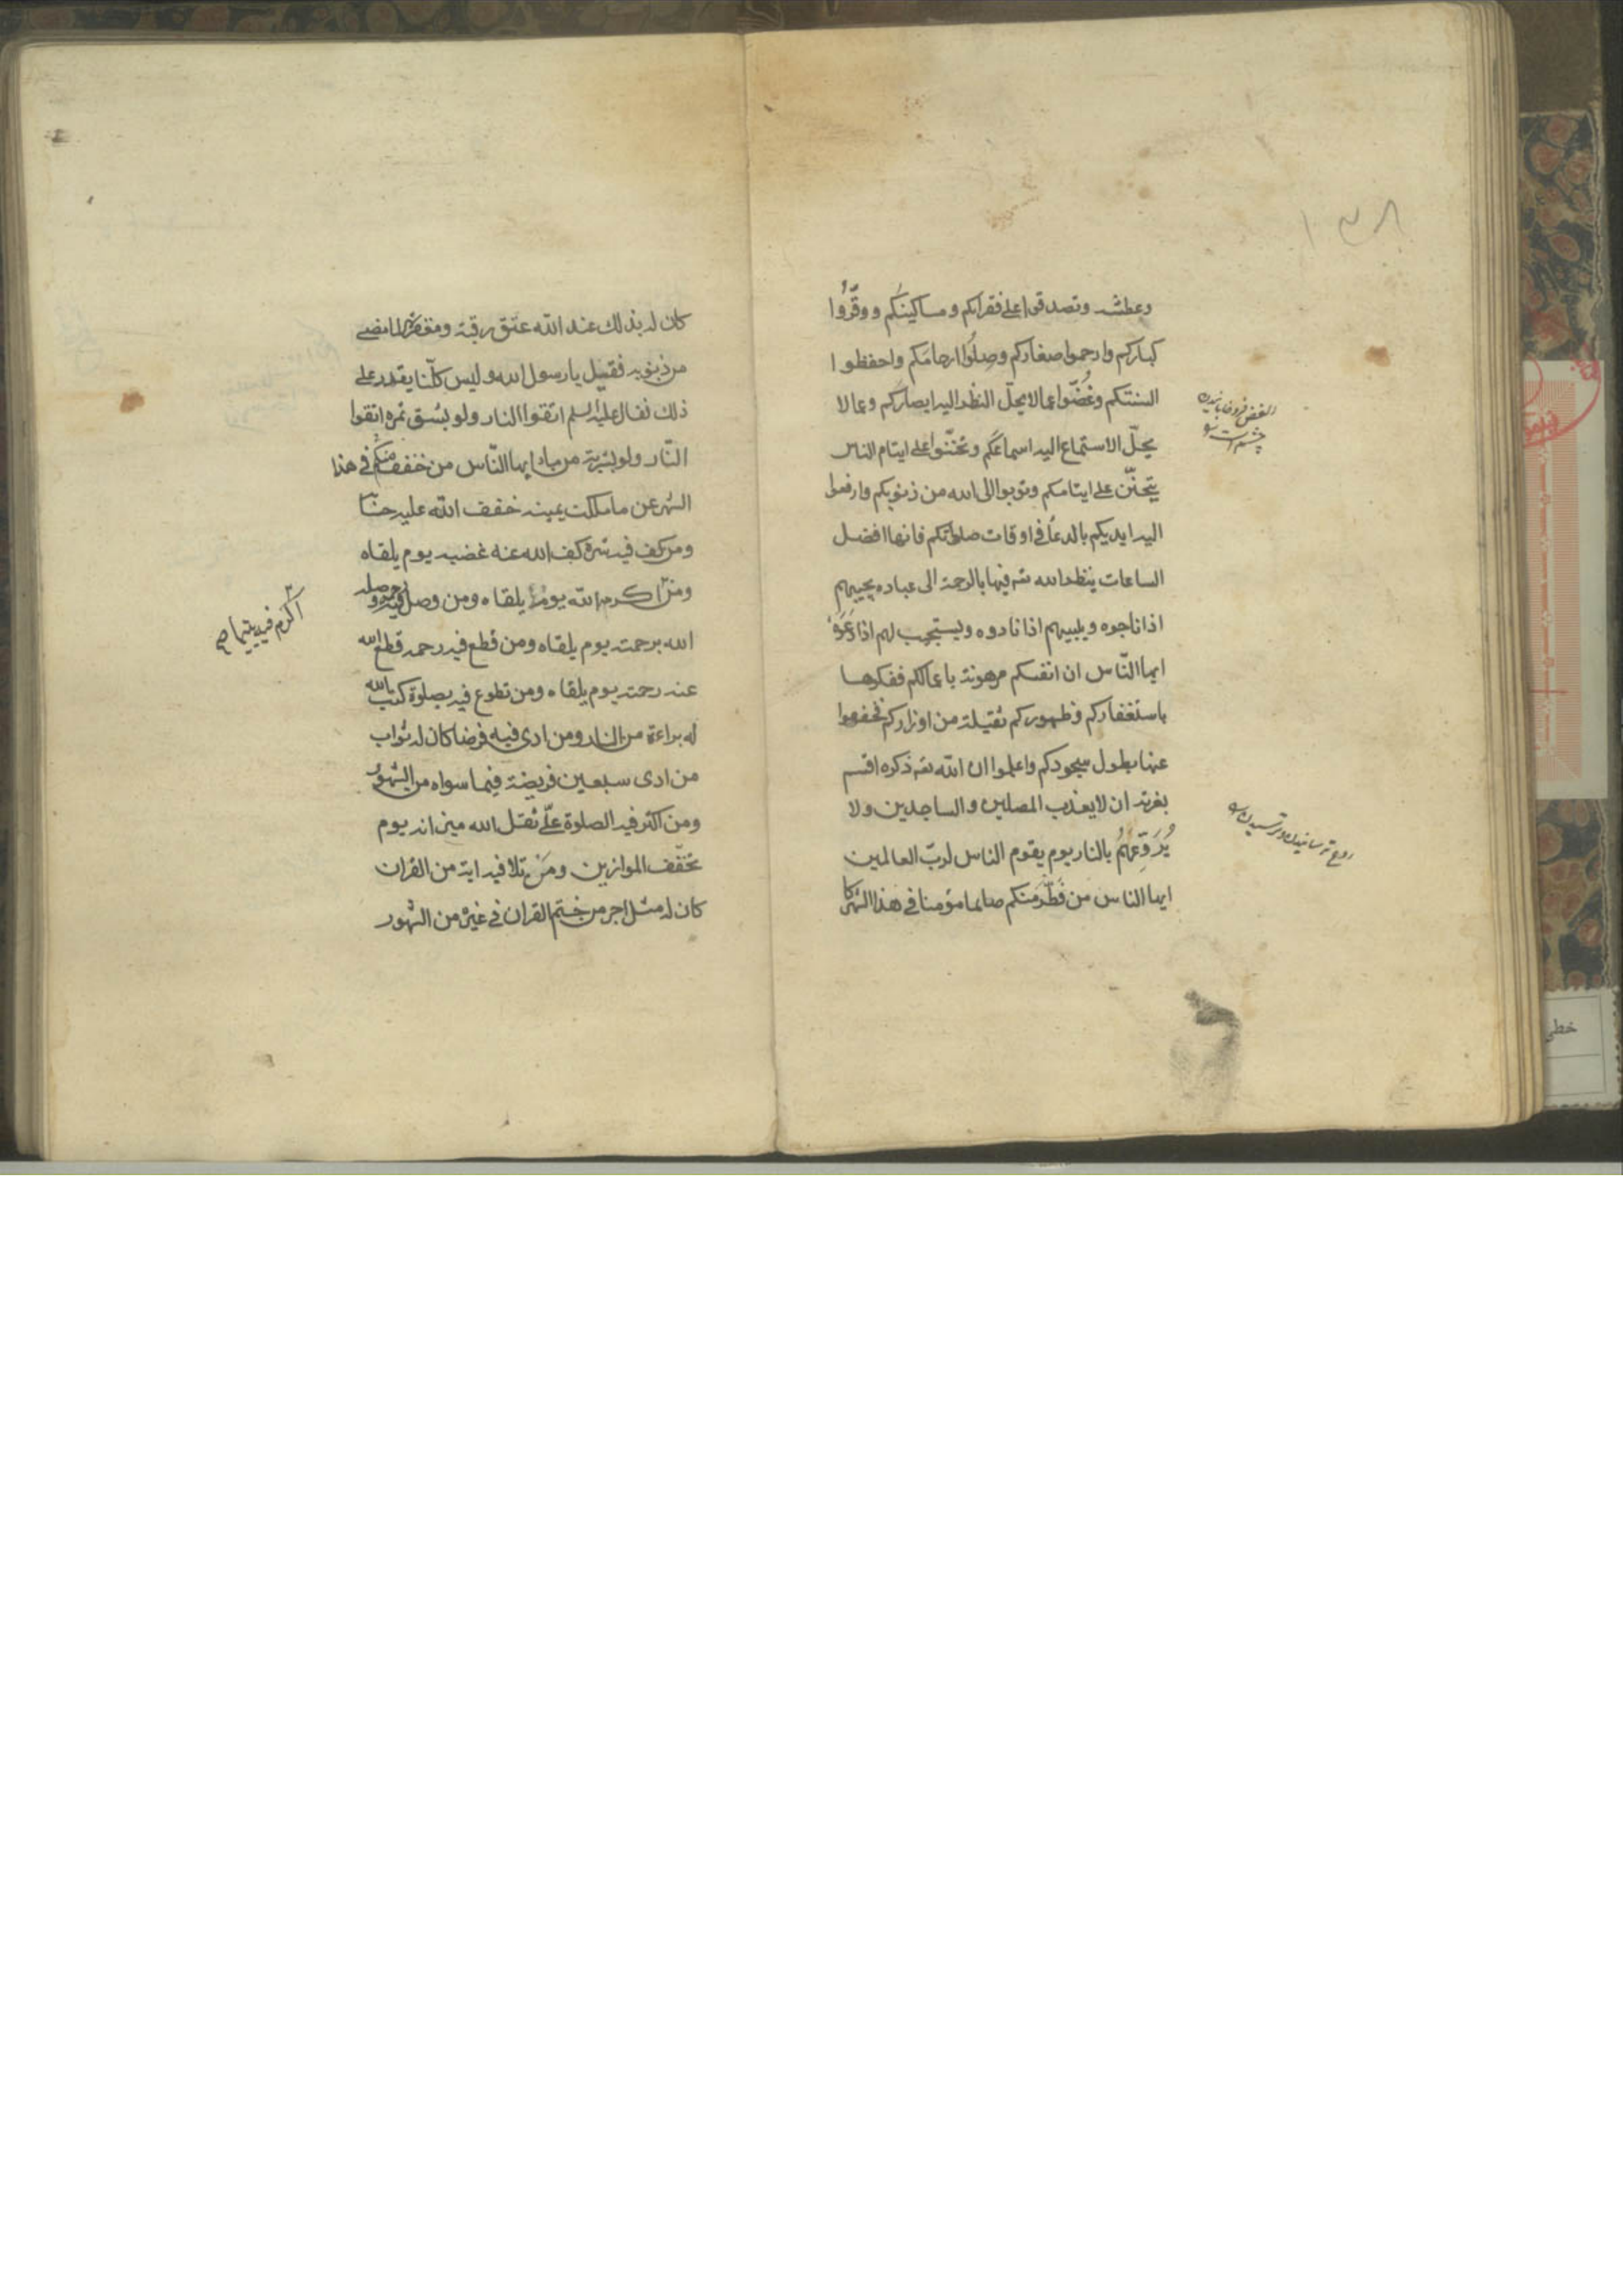 ۱۳۸
وعطشه وتصدقوا على فقرائكم ومساكينكم ووقّرُوا
كباركم وارحموا صغاركم وصِلُوا ارحامَكم واحفظوا
السنتكم وغُضّوا عما لا يحلّ النظر اليه ابصاركم وعما لا
يحلّ الاستماع اليه اسماعَكم وتحنّنوا على ايتام الناس
يتحنّن على ايتامكم وتوبوا الى الله من ذنوبكم وارفعوا
اليه ايديكم بالدعاء فى اوقات صلواتكم فانها افضل
الساعات ينظر الله فيها بالرحمة الى عباده يجيبهم
اذا ناجوه ويلبيهم اذا نادوه ويستجيب لهم اذا دَعَوْهُ
ايها النّاس ان انفسكم مرهونة باعمالكم ففكوها
باستغفاركم وظهوركم ثقيلة من اوزاركم فخففوا
عنها بطول سجودكم واعلموا ان الله ذكره اقسم
بعزته ان لا يعذب المصلين والساجدين ولا
يُرَوِّعَهُمْ بالنار يوم يقوم الناس لربّ العالمين
ايها الناس من فَطَّرَ منكم صائما مؤمنا فى هذا الشهر
كان له بذلك عند الله عتق رقبة ومغفرة لما مضى
من ذنوبه فقيل يا رسول الله وليس كلّنا يقدر على
ذلك فقال عليه السلم اتقوا النار ولو بشق تمرة اتقوا
النّار ولو بشربة من ماء ايها النّاس من خفف منكم فى هذا
الشهر عن ما ملكت يمينه خفف الله عليه حسابه
ومن كف فيه شره كف الله عنه غضبه يوم يلقاه
ومن اكرمه الله يوم يلقاه ومن وصل فيه رحمه وصله
الله برحمته يوم يلقاه ومن قطع فيه رحمه قطع الله
عنه رحمته يوم يلقاه ومن تطوع فيه بصلوة كتب الله
له براءة من النار ومن ادى فيه فرضا كان له ثواب
من ادى سبعين فريضة فيما سواه من الشهور
ومن اكثر فيه الصلوة علىّ ثقل الله ميزانه يوم
تخفّف الموازين ومَنْ تلا فيه اية من القران
كان له مثل اجر من ختم القران فى غيره من الشهور
اكرم فيه يتيما صح
خطی